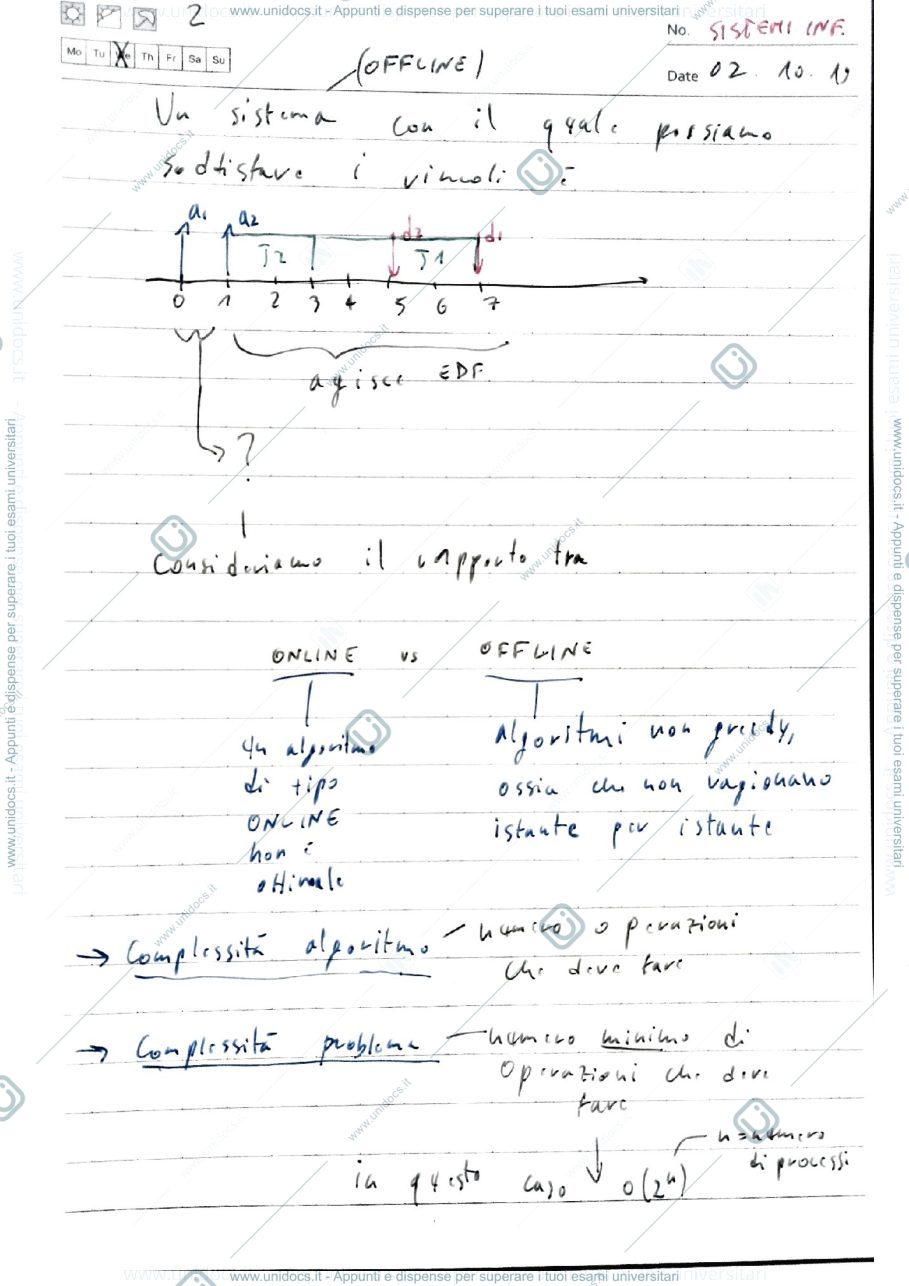 www.unidocs.it - Appunti e dispense per superare i tuoi esami universitari
2
No. SISTEMI INF.
Mo Tu We Th Fr Sa Su
Date 02 . 10 . 19
(OFFLINE)
Un sistema con il quale possiamo
soddisfare i vincoli è
a1 a2 d2 d1
J2 J1
0 1 2 3 4 5 6 7
agisce EDF
?
Consideriamo il rapporto tra
ONLINE vs OFFLINE
un algoritmo
di tipo
ONLINE
non è
ottimale
algoritmi non greedy,
ossia che non ragionano
istante per istante
→ Complessità algoritmo - numero operazioni
che deve fare
→ Complessità problema - numero minimo di
operazioni che deve
fare
n = numero
di processi
in questo caso ↓ O(2^n)
www.unidocs.it - Appunti e dispense per superare i tuoi esami universitari
www.unidocs.it - Appunti e dispense per superare i tuoi esami universitari
www.unidocs.it - Appunti e dispense per superare i tuoi esami universitari